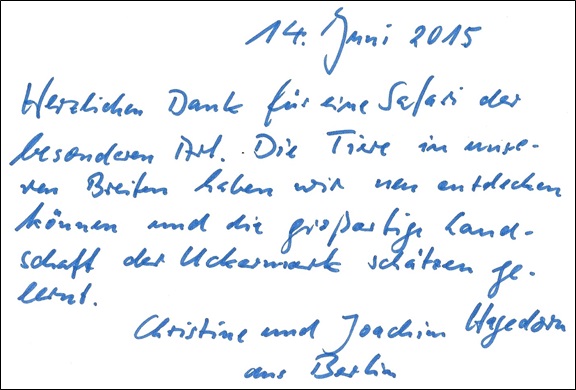 14. Juni 2015
Herzlichen Dank für eine Safari der
besonderen Art. Die Tiere in unse-
ren Breiten haben wir neu entdecken
können und die großartige Land-
schaft der Uckermark schätzen ge-
lernt.
Christine und Joachim Hagedorn
aus Berlin